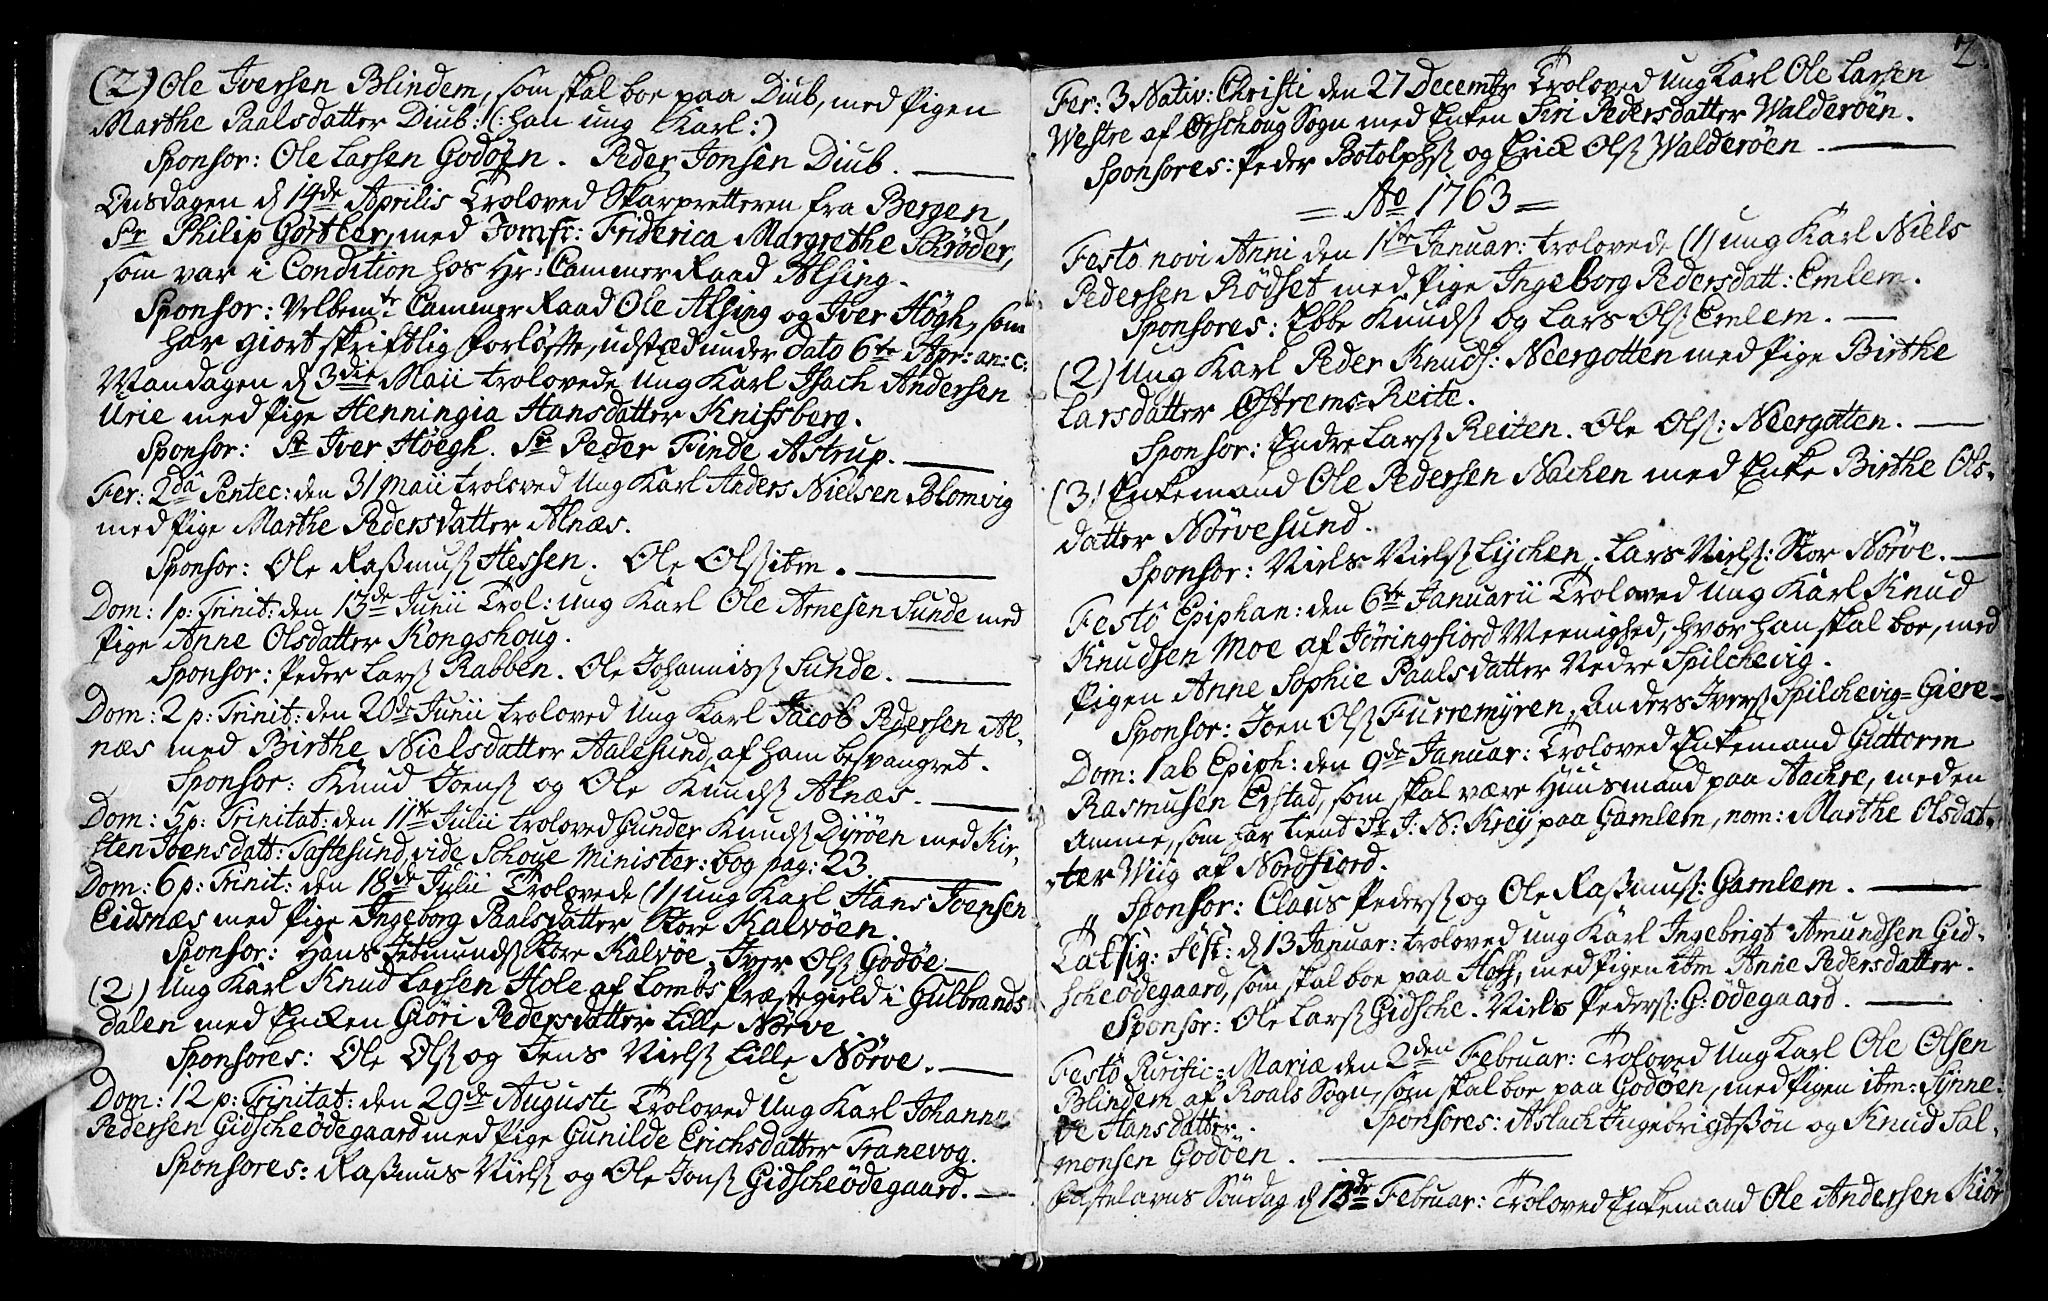 (2) Ole Iversen Blindem, som skal boe paa Diub, med Pigen
Marthe Paalsdatter Diub: (: han ung Karl:)
Sponsor: Ole Larsen Godøen. Peder Jonsen Diub.
Onsdagen d 14de Aprilis Troloved Skarpretteren fra Bergen,
Sr Philip Gørtler, med Jomfr: Friderica Margrethe Schrøder,
som var i Condition hos Hr: Cammer Raad Alsing.
Sponsor: Velbemte Cammer Raad Ole Alsing og Iver Høgh, som
har giort skriftlig forløfte, udstæd under dato 6te Apr: an: c:
Mandagen d 3die Maii trolovede Ung Karl Isach Andersen
Urie med Pige Henningia Hansdatter Knifsberg.
Sponsor: Sr Iver Høegh. Sr Peder Finde Astrup.
Fer: 2da Pentec: den 31 Maii troloved Ung Karl Anders Nielsen Blomvig
med Pige Marthe Pedersdatter Alnæs.
Sponsor: Ole Rasmuss Hessen. Ole Olss ibm.
Dom: 1 p: Trinit: den 13de Junii Trol: ung Karl Ole Arnesen Sunde med
Pige Anne Olsdatter Kongshoug.
Sponsor: Peder Larss Rabben. Ole Johanniss Sunde.
Dom: 2 p: Trinit: den 20de Junii troloved Ung Karl Jacob Pedersen Al-
næs med Birthe Nielsdatter Aalesund, af ham besvangret.
Sponsor: Knud Joenss og Ole Knudss Alnæs.
Dom: 5 p: Trinitat: den 11te Julii troloved Gunder Knudss Dyrøen med Kir-
sten Joensdatt: Taftesund, vide Schoue Minister: bog pag: 23.
Dom: 6 p: Trinit: den 18de Julii Trolovede (1) ung Karl Hans Joensen
Eidsnæs med Pige Ingeborg Paalsdatter Store Kalvøen.
Sponsor: Hans Jetmundss Store Kalvøe. Iver Olss Godøe
(2) Ung Karl Knud Larsen Hole af Lombs Præstegield i Gulbrands
dalen med Enken Giøri Pedersdatter Lille Nørve.
Sponsores: Ole Olss og Jens Nielss Lille Nørve.
Dom: 12 p: Trinitat: den 29de Augusti Troloved Ung Karl Johanne
Pedersen Gidscheødegaard med Pige Gunilde Erichsdatter Tranevog.
Sponsores: Rasmus Nielss og Ole Jonss Gidscheødegaard.
2.
Fer: 3 Nativ: Christi den 27 Decembr Troloved Ung Karl Ole Larsen
Westre af Ørschoug Sogn med Enken Siri Pedersdatter Walderøen.
Sponsores: Peder Botolphss og Erick Olss Walderøen
= Ao 1763 =
Festo novi Anni den 1ste Januar: trolovede (1) ung Karl Niels
Pedersen Rødset med Pige Ingeborg Pedersdatt: Emlem.
Sponsores: Ebbe Knudss og Lars Olss Emlem.
(2) Ung Karl Peder Knuds: Neergotten med Pige Birthe
Larsdatter Østrems=Reite.
Sponsor: Endre Larss Reiten. Ole Olss: Neergotten.
(3) Enkemand Ole Pedersen Nachen med Enke Birthe Ols-
datter Nørvesund.
Sponsor: Niels Nielss Lychen. Lars Nielss: Stor Nørve.
Festo Epiphan: den 6te Januarii Troloved Ung Karl Knud
Knudsen Moe af Jørringfiord Meenighed, hvor han skal boe, med
Pigen Anne Sophie Paalsdatter Nedre Spilchevig.
Sponsor: Joen Olss Furremyren. Anders Iverss Spilchevig=Giere-
Dom: 1 ab Epiph: den 9de Januar: Troloved Enkemand Guttorm
Rasmusen Erstad, som skal være Huusmand paa Aachre, med en
Amme, som har tient Sr J: N: Krey paa Gamlem, nom: Marthe Olsdat-
ter Wiig af Nordfiord.
Sponsor: Claus Pederss og Ole Rasmuss: Gamlem.
Taksig: Fest: d 13 Januar: troloved ung Karl Ingebrigt Amundsen Gid-
scheødegaard, som skal boe paa Hoff, med Pigen ibm Anne Pedersdatter.
Sponsor: Ole Larss Gidsche. Niels Pederss: G: ødegaard.
Festo Purific: Mariæ den 2den Februar: Troloved Ung Karl Ole Olsen
Blindem af Roals Sogn, som skal boe paa Godøen, med Pigen ibm: Synne-
ve Hansdatter. Sponsores: Aslach Ingebrigtssøn og Knud Sal-
monsen Godøen.
Fastelavns Søndag d 13de Februar: Troloved Enkemand Ole Andersen Kiør